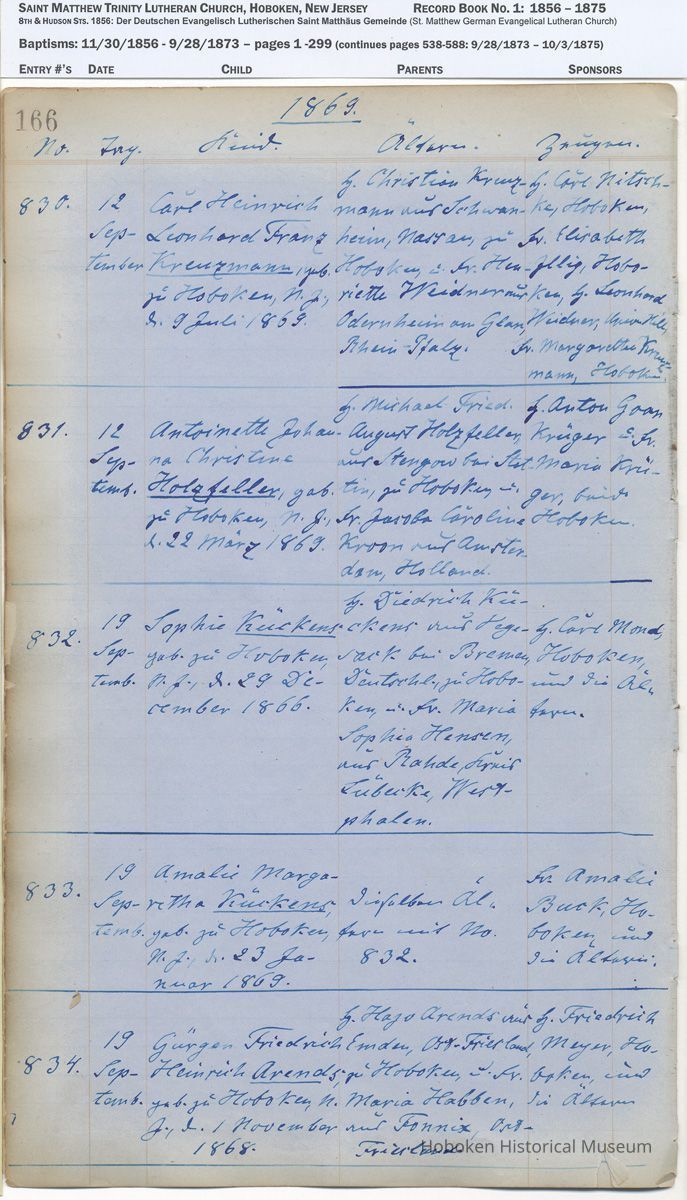 SAINT MATTHEW TRINITY LUTHERAN CHURCH, HOBOKEN, NEW JERSEY RECORD BOOK NO. 1: 1856 – 1875
8TH & HUDSON STS. 1856: Der Deutschen Evangelisch Lutherischen Saint Matthäus Gemeinde (St. Matthew German Evangelical Lutheran Church)
Baptisms: 11/30/1856 - 9/28/1873 – pages 1 -299 (continues pages 538-588: 9/28/1873 – 10/3/1875)
ENTRY #'S DATE CHILD PARENTS SPONSORS
166
1869.
No. Tag. Kind. Ältern. Zeugen.
830.
12
Sep-
tember
Carl Heinrich
Leonhard Franz
Kreuzmann, geb.
zu Hoboken, N. J.,
d. 9 Juli 1869.
H. Christian Kreuz-
mann aus Schwan-
heim, Nassau, zu
Hoboken, u. Fr. Hen-
riette Weidner aus
Odernheim am Glan,
Rhein-Pfalz.
H. Carl Nitsch-
ke, Hoboken,
Fr. Elisabeth
Illig, Hobo-
ken, H. Leonhard
Weidner, Union Hill,
Fr. Margaretha Kreuz-
mann, Hoboken.
831.
12
Sep-
temb.
Antoinette Johan-
na Christine
Holzfeller, geb.
zu Hoboken, N. J.,
d. 22 März 1869.
H. Michael Fried.
August Holzfeller,
aus Stengow bei Stet-
tin, zu Hoboken u.
Fr. Jacoba Caroline
Kroon aus Amster-
dam, Holland.
H. Anton
Krüger u. Fr.
Maria Krü-
ger, beide
Hoboken.
832.
19
Sep-
temb.
Sophie Kückens,
geb. zu Hoboken,
N. J., d. 29 De-
cember 1866.
H. Diedrich Kü-
ckens aus Vege-
sack bei Bremen,
Deutschl., zu Hobo-
ken, u. Fr. Maria
Sophia Hensen,
aus Rahde, Kreis
Lübecke, West-
phalen.
H. Carl Mond,
Hoboken,
und die Äl-
tern.
833.
19
Sep-
temb.
Amalie Marga-
retha Kückens,
geb. zu Hoboken,
N. J., d. 23 Ja-
nuar 1869.
Dieselben Äl-
tern mit No.
832.
Fr. Amalie
Buck, Ho-
boken, und
die Ältern.
834.
19
Sep-
temb.
Gürgen Friedrich
Heinrich Arends,
geb. zu Hoboken, N.
J., d. 1 November
1868.
H. Hajo Arends aus
Emden, Ost-Friesland,
zu Hoboken, u. Fr.
Maria Habben,
aus Fonnix, Ost-
Friesland.
H. Friedrich
Meyer, Ho-
boken, und
die Ältern
Hoboken Historical Museum